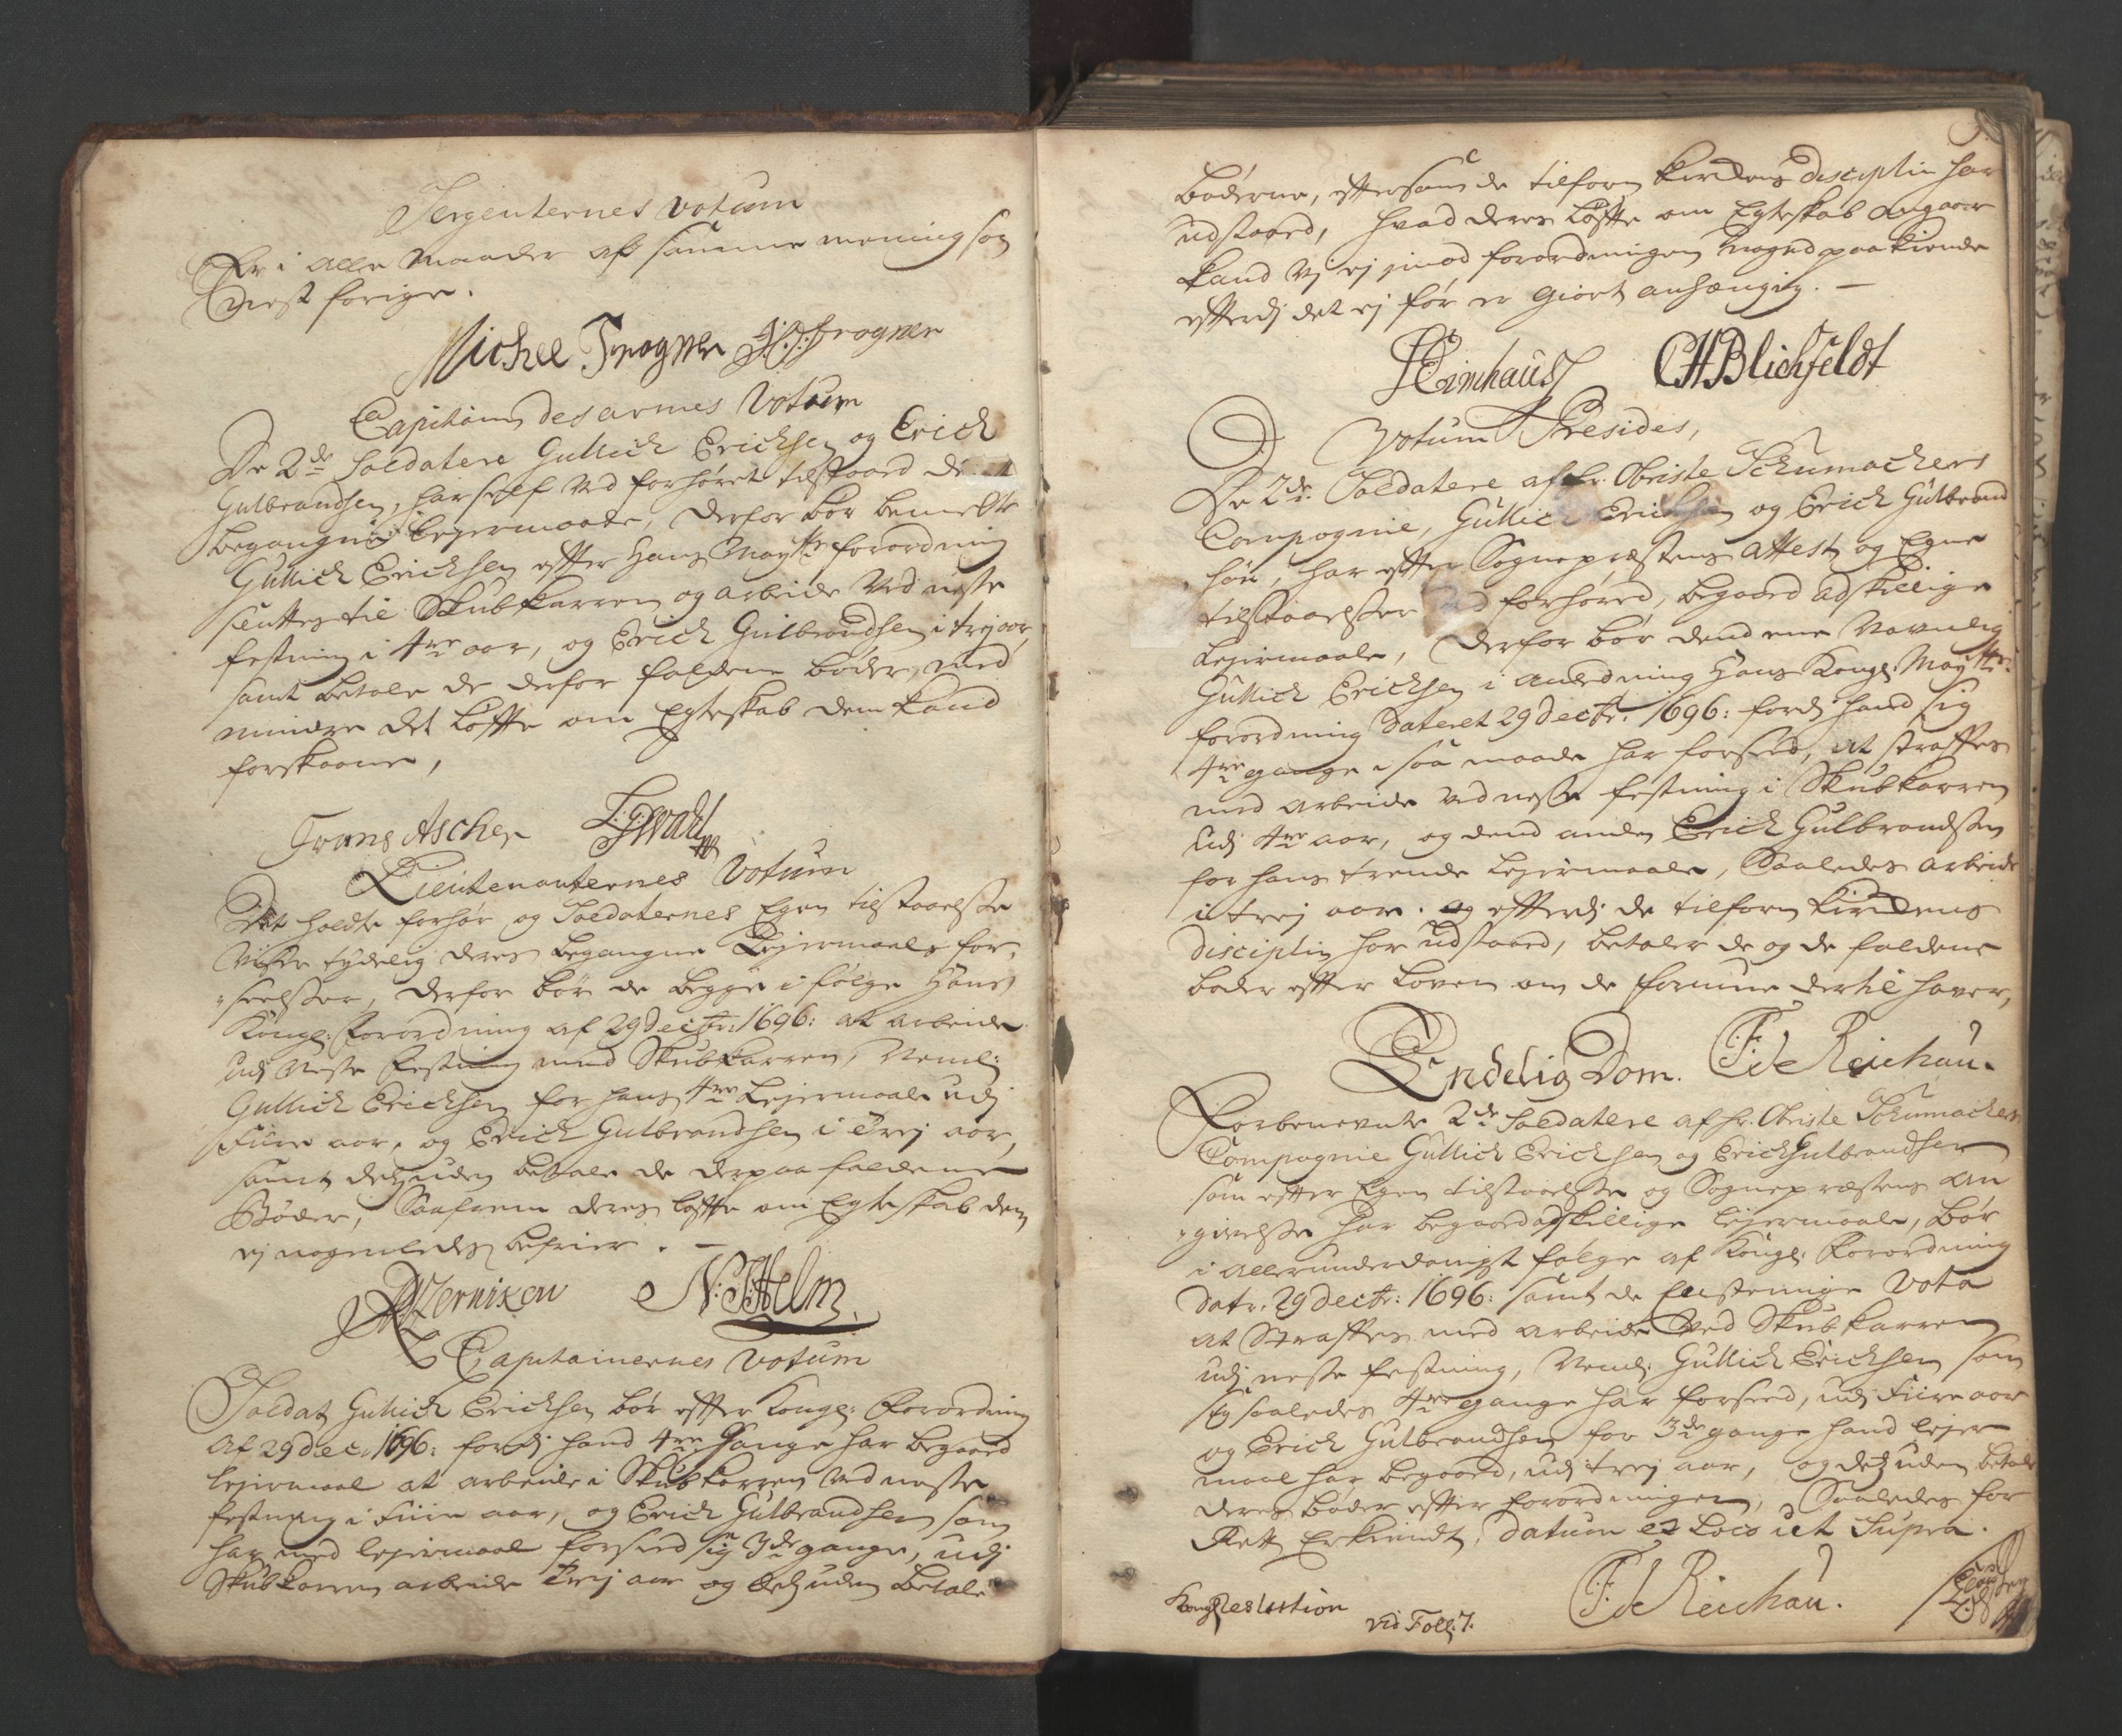 Sergenternes votum
Er i alle maader af samme mening som
nest forige.
Michel Trogner
Capitain des armes Votum
De 2de Soldatere Gullich Erichsen og Erich
Gulbrandsen, har self ved forhøret tilstaaed deres
begangne Lejermaale, derfor bør bemelte
Gullich Erichsen efter Hans Maytts forordning
settes til Skubkarren og arbeide ved neste
festning i 4re aar, og Erich Gulbrandsen i trej aar,
samt betale de derfor faldene bøder, med
mindre det løffte om Egteskab dem kand
forskaane,
Frans Ascher
Lieutenanternes Votum
Det holdte forhør og Soldaternes Egen tilstaaelse
viser tydelig deres begangne Lejermaals for-
seelser, derfor bør de begge i følge Hans
Kongl: Forordning af 29 Decbr: 1696: at arbeide
udj neste festning med Skubkarren, Neml:
Gullich Erichsen for hans 4re Lejermaale udj
Fiire aar, og Erich Gulbrandsen i Trej aar,
samt desuden betale de derpaa faldene
Bøder, Saafrem deres løffte om Egteskab dem
ej nogenledes befrier. —
Wernixen N: J: Helm
Capitainernes Votum
Soldat Gullich Erichsen bør efter Kongl: Forordning
af 29 Dec: 1696: fordj hand 4re Gange har begaaed
lejermaal at arbeide i Skubkarren ved neste
festning i Fiire aar, og Erich Gulbrandsen som
har med lejermaal forseed sig 3de gange, udj
Skubkarren arbeide Trej aar og desuden betale
bøderne, eftersom de tilforn Kirkens disciplin har
udstaaed, hvad deres løffte om Egteskab angaar
kand vj ej imod forordningen noged paakiende
efterdj det ej før er giort anhængig. —
CHBlichfeldt
Votum Præsides,
De 2de Soldatere af Hr. Obriste Schumachers
Compagnie, Gullich Erichsen og Erich Gulbrand
søn, har efter Sognepræstens attest og Egne
tilstaaelser ved forhøred, begaaed adskillige
Lejermaale, derfor bør dend ene Navnlig
Gullich Erichsen i anledning Hans Kongl: Maytts
forordning dateret 29 Decbr: 1696: fordj hand sig
4re gange i saa maade har forseed, at straffes
med arbeide ved neste festning i Skubkarren
udj 4re aar, og dend anden Erich Gulbrandsen
for hans trende Lejermaale, Saaledes arbeide
i trej aar. og efterdj de tilforn Kirkens
disciplin har udstaaed, betaler de og de faldene
bøder efter Loven om de formue dertil haver,
F: de Reichau.
Endelig Dom.
Forbenevnte 2de Soldatere af Hr. Obriste Schumachers
Compagnie Gullich Erichsen og Erich Gulbrandsen
som efter Egen tilstaaelse og Sognepræstens an
givelse har begaaed adskillige lejermaale, bør
i allerunderdanigst følge af Kongl: Forordning
datr: 29 Decbr: 1696: samt de fleste Vota
at Straffes med arbeide ved Skubkarren
udj neste festning, Neml: Gullich Erichsen som
sig saaledes 4re gange har forseed, udj Fiire aar
og Erich Gulbrandsen for 3de gange hand lejer
maal har begaaed, udj trej aar, og desuden betale
deres bøder efter forordningen, Saaledes for
Rett Erkiendt, Datum et Loco ut Supra.
F: de Reichau.
Kongl Resolution
vid Foll: 7.